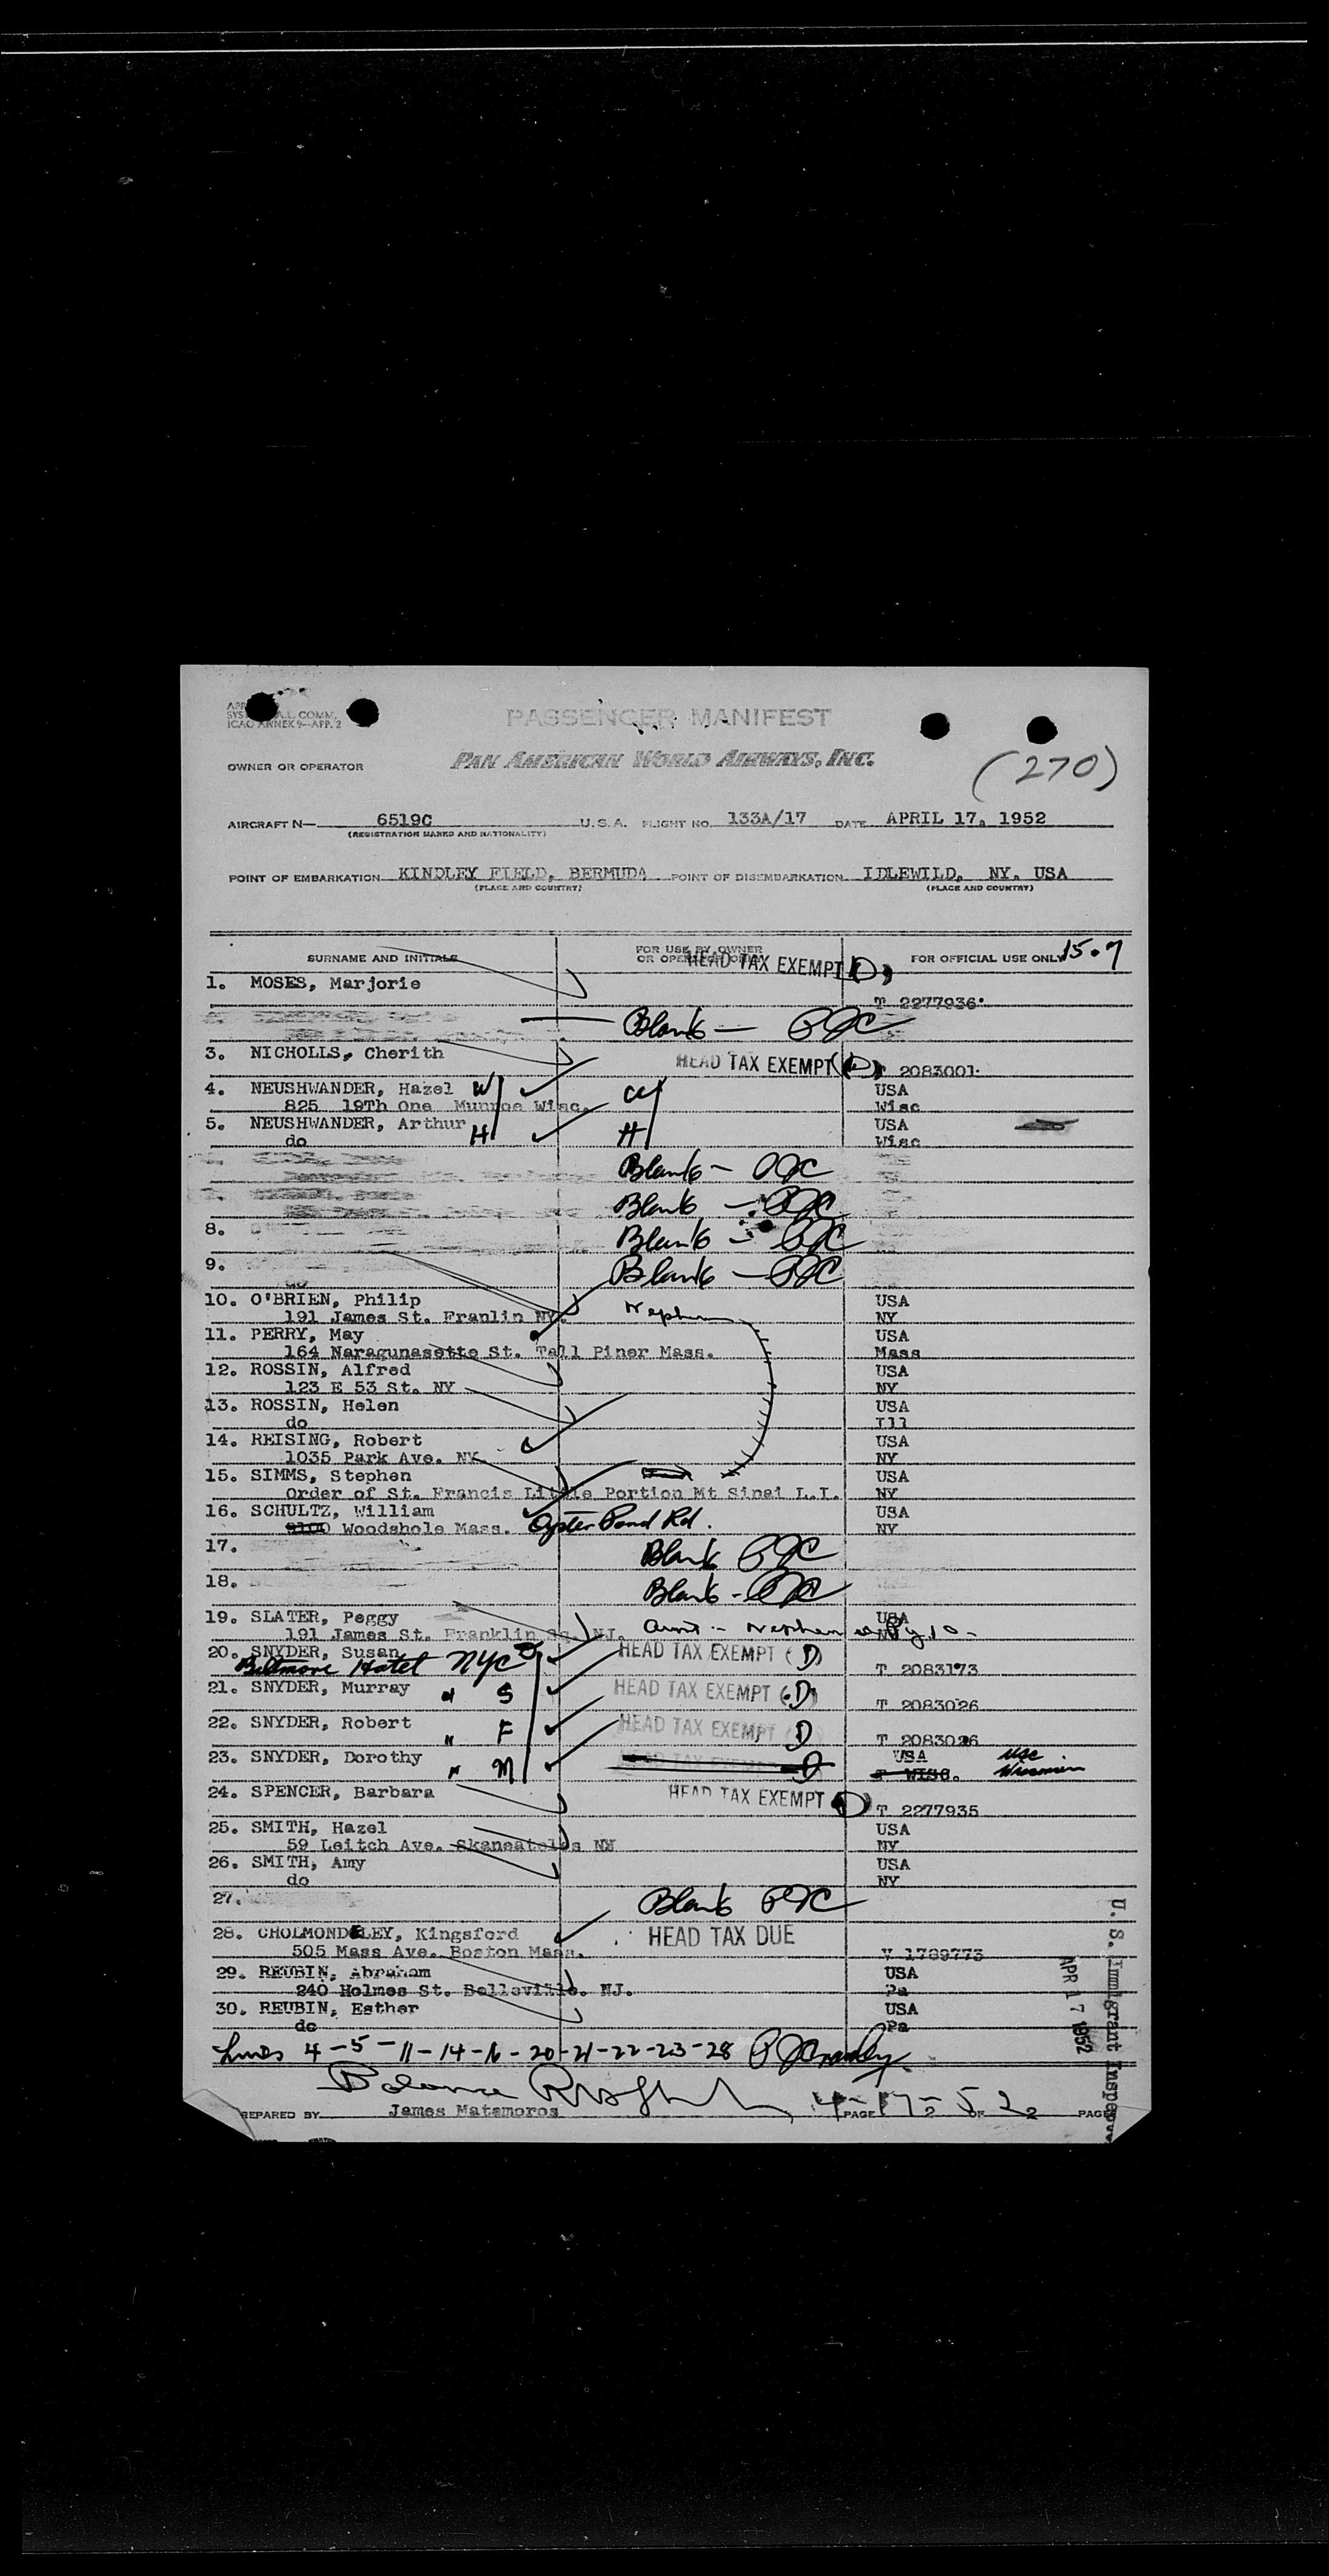 ICAO ANNEX 9—APP. 2
PASSENGER MANIFEST
OWNER OR OPERATOR PAN AMERICAN WORLD AIRWAYS, INC.
(270)
AIRCRAFT N— 6519C U.S.A. FLIGHT NO. 133A/17 DATE APRIL 17, 1952
(REGISTRATION MARKS AND NATIONALITY)
POINT OF EMBARKATION KINDLEY FIELD, BERMUDA POINT OF DISEMBARKATION IDLEWILD, NY. USA
(PLACE AND COUNTRY) (PLACE AND COUNTRY)
SURNAME AND INITIALS FOR USE BY OWNER OR OPERATOR ONLY FOR OFFICIAL USE ONLY 15.7
HEAD TAX EXEMPT (D)
1. MOSES, Marjorie
T 2277936
Blank — PJC
3. NICHOLLS, Cherith HEAD TAX EXEMPT (D) T 2083001
4. NEUSHWANDER, Hazel W W USA
825 19Th One Munroe Wisc. Wisc
5. NEUSHWANDER, Arthur H H USA
do Wisc
Blank — PJC
Blank — PJC
8. Blank — PJC
9. Blank — PJC
10. O'BRIEN, Philip Nephew USA
191 James St. Franlin NY. NY
11. PERRY, May USA
164 Naragunasette St. Tall Piner Mass. Mass
12. ROSSIN, Alfred USA
123 E 53 St. NY NY
13. ROSSIN, Helen USA
do Ill
14. REISING, Robert USA
1035 Park Ave. NY NY
15. SIMMS, Stephen USA
Order of St. Francis Little Portion Mt Sinai L.I. NY
16. SCHULTZ, William USA
Woodshole Mass. Oyster Pond Rd. NY
17. Blank PJC
18. Blank - PJC
19. SLATER, Peggy USA
191 James St. Franklin Sq. NJ. Aunt - Nephew
20. SNYDER, Susan HEAD TAX EXEMPT (D)
Biltmore Hotel NYC D T 2083173
21. SNYDER, Murray " S HEAD TAX EXEMPT (D) T 2083026
22. SNYDER, Robert " F HEAD TAX EXEMPT (D) T 2083026
23. SNYDER, Dorothy " M HEAD TAX EXEMPT D USA USC
T WISC. Wisconsin
24. SPENCER, Barbara HEAD TAX EXEMPT (D) T 2277935
25. SMITH, Hazel USA
59 Leitch Ave. Skaneateles NY NY
26. SMITH, Amy USA
do NY
27. Blank PJC
28. CHOLMONDELEY, Kingsford HEAD TAX DUE
505 Mass Ave. Boston Mass. V 1789773
29. REUBIN, Abraham USA
240 Holmes St. Belleville. NJ. Pa
30. REUBIN, Esther USA
do Pa
Lines 4-5-11-14-16-20-21-22-23-28
Balance 4-17-52
PREPARED BY James Matamoros PAGE 2 OF 2 PAGES
U. S. Immigrant Inspector
APR 17 1952